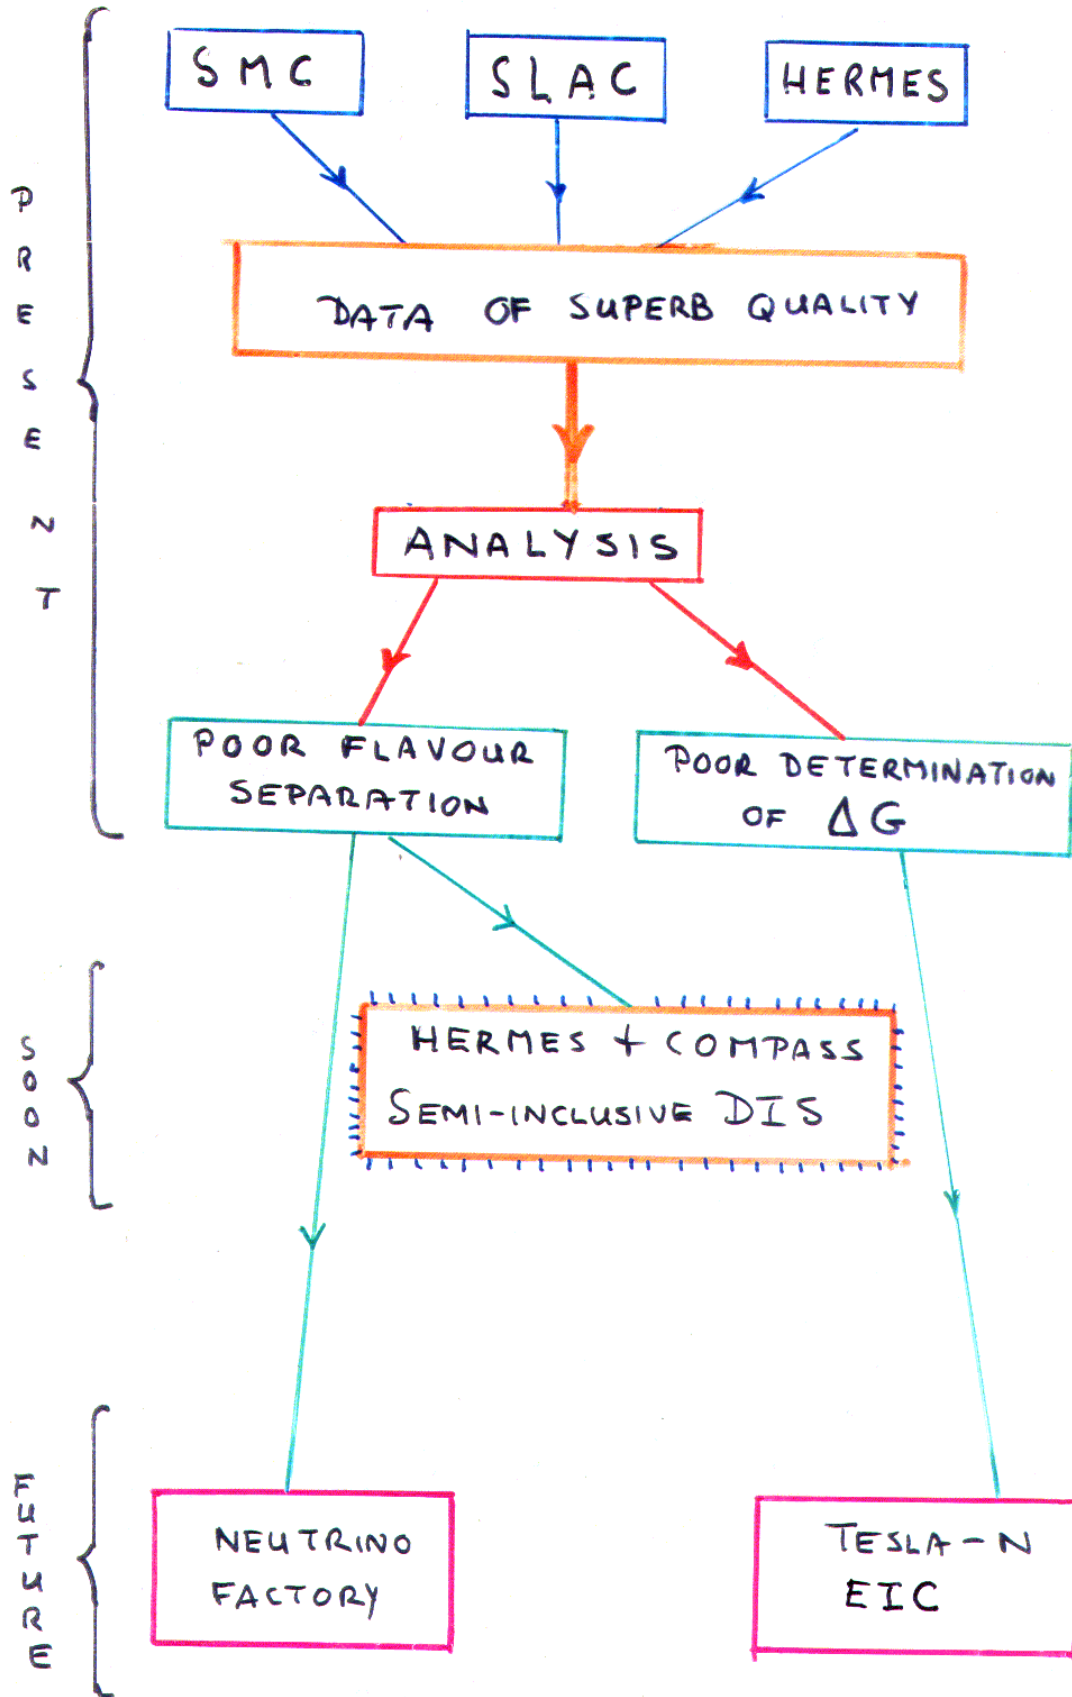 SMC
SLAC
HERMES
PRESENT
DATA OF SUPERB QUALITY
ANALYSIS
POOR FLAVOUR
SEPARATION
POOR DETERMINATION
OF ΔG
SOON
HERMES + COMPASS
SEMI-INCLUSIVE DIS
FUTURE
NEUTRINO
FACTORY
TESLA-N
EIC